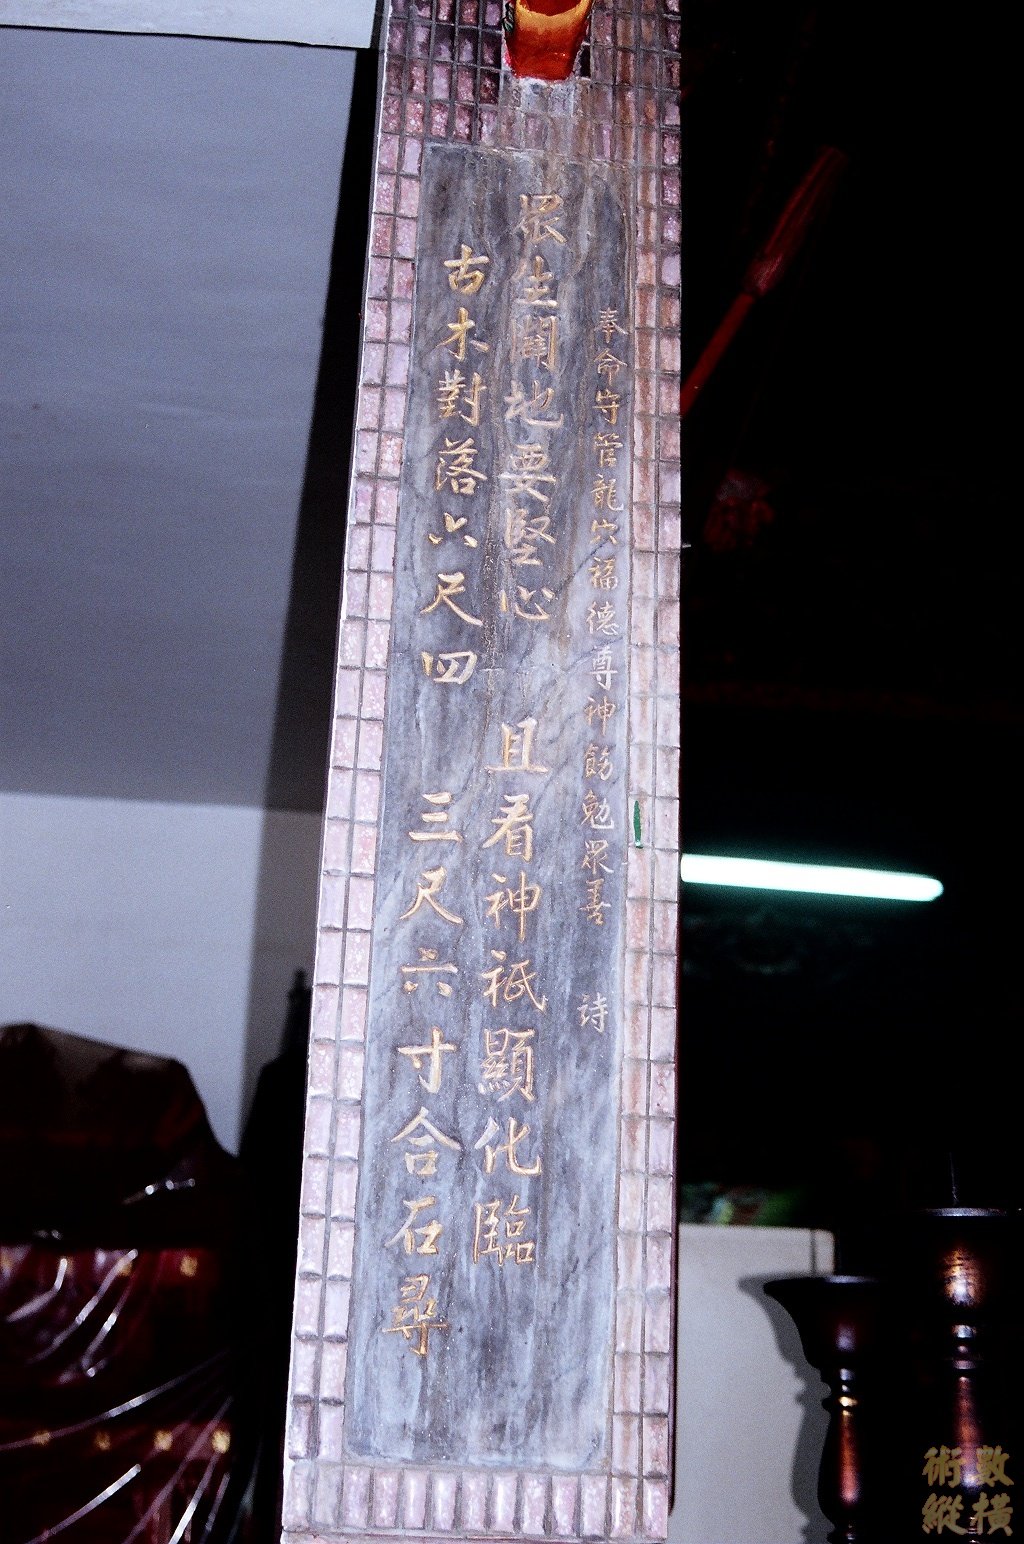 奉命守管龍穴福德尊神飭勉眾善 詩
眾生闢地要堅心 且看神祇顯化臨
古木對落六尺四 三尺六寸合石尋
數橫
術縱